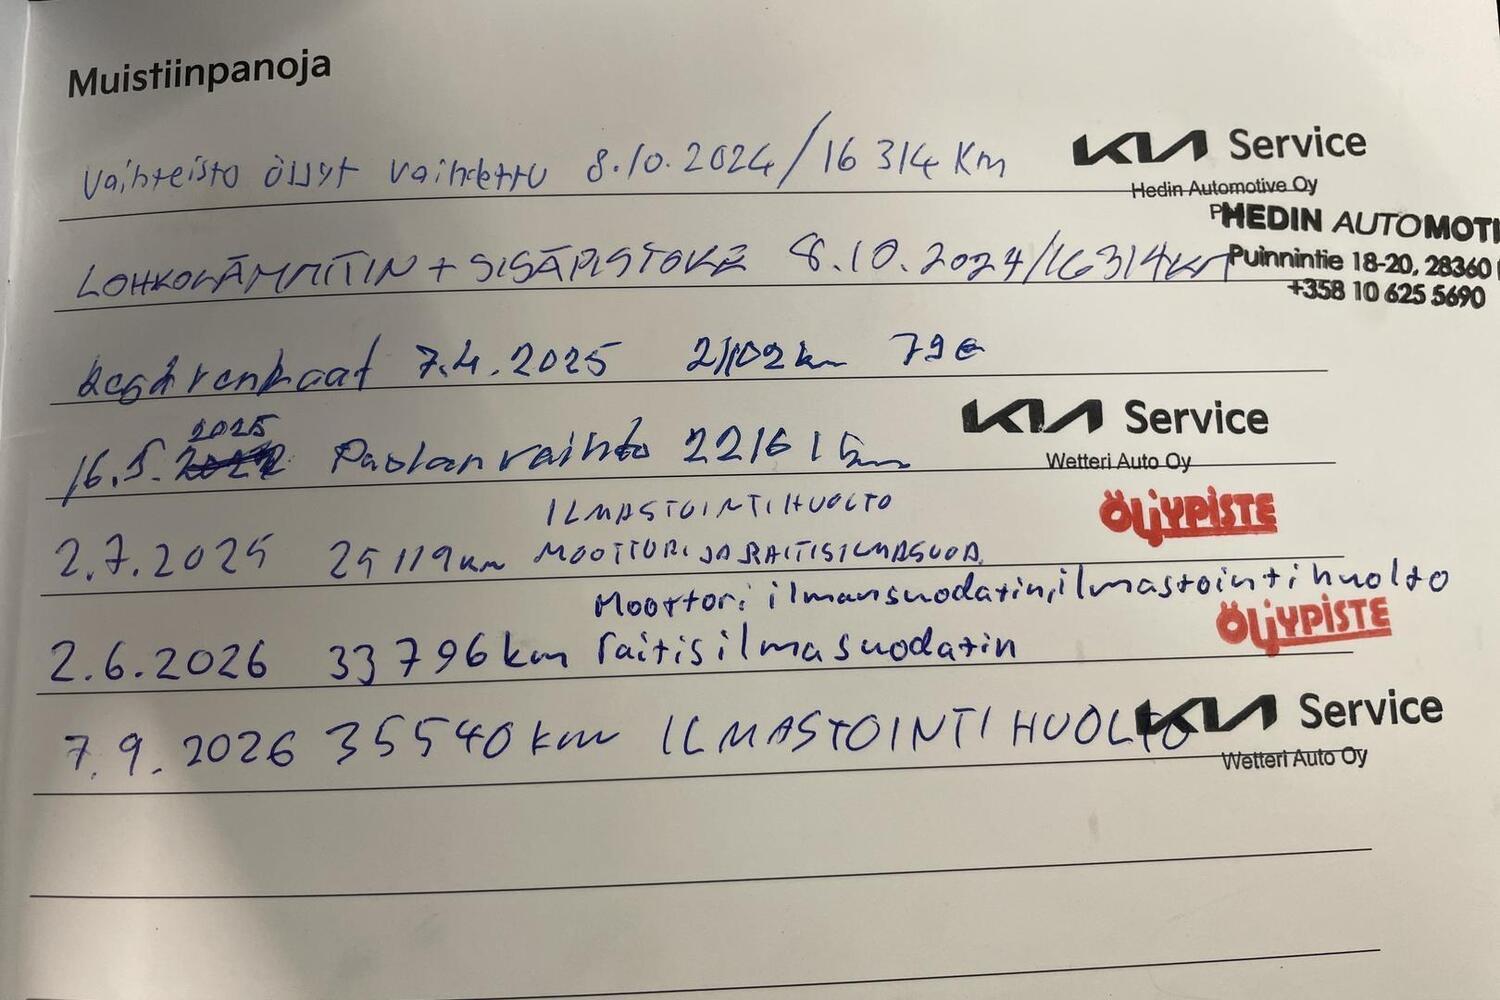 Muistiinpanoja
Vaihteisto öljyt vaihdettu 8.10.2024/16 314 Km
KIA Service
Hedin Automotive Oy
HEDIN AUTOMOTI
LOHKOLÄMMITIN + SISÄPISTOKE 8.10.2024/16314km
Puinnintie 18-20, 28360
+358 10 625 5690
kesärenkaat 7.4.2025 21102km 79€
2025
16.5. Puolanvaihto 22161 km
KIA Service
Wetteri Auto Oy
ILMASTOINTIHUOLTO
ÖLJYPISTE
2.7.2025 25119km MOOTTORI JA RAITISILMASUOD.
Moottori ilmansuodatin, ilmastointihuolto
ÖLJYPISTE
2.6.2026 33796km raitisilmasuodatin
7.9.2026 35540km ILMASTOINTI HUOLTO
KIA Service
Wetteri Auto Oy